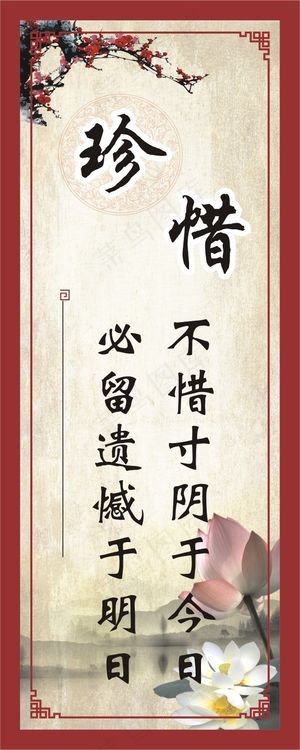 珍惜
不惜寸阴于今日
必留遗憾于明日